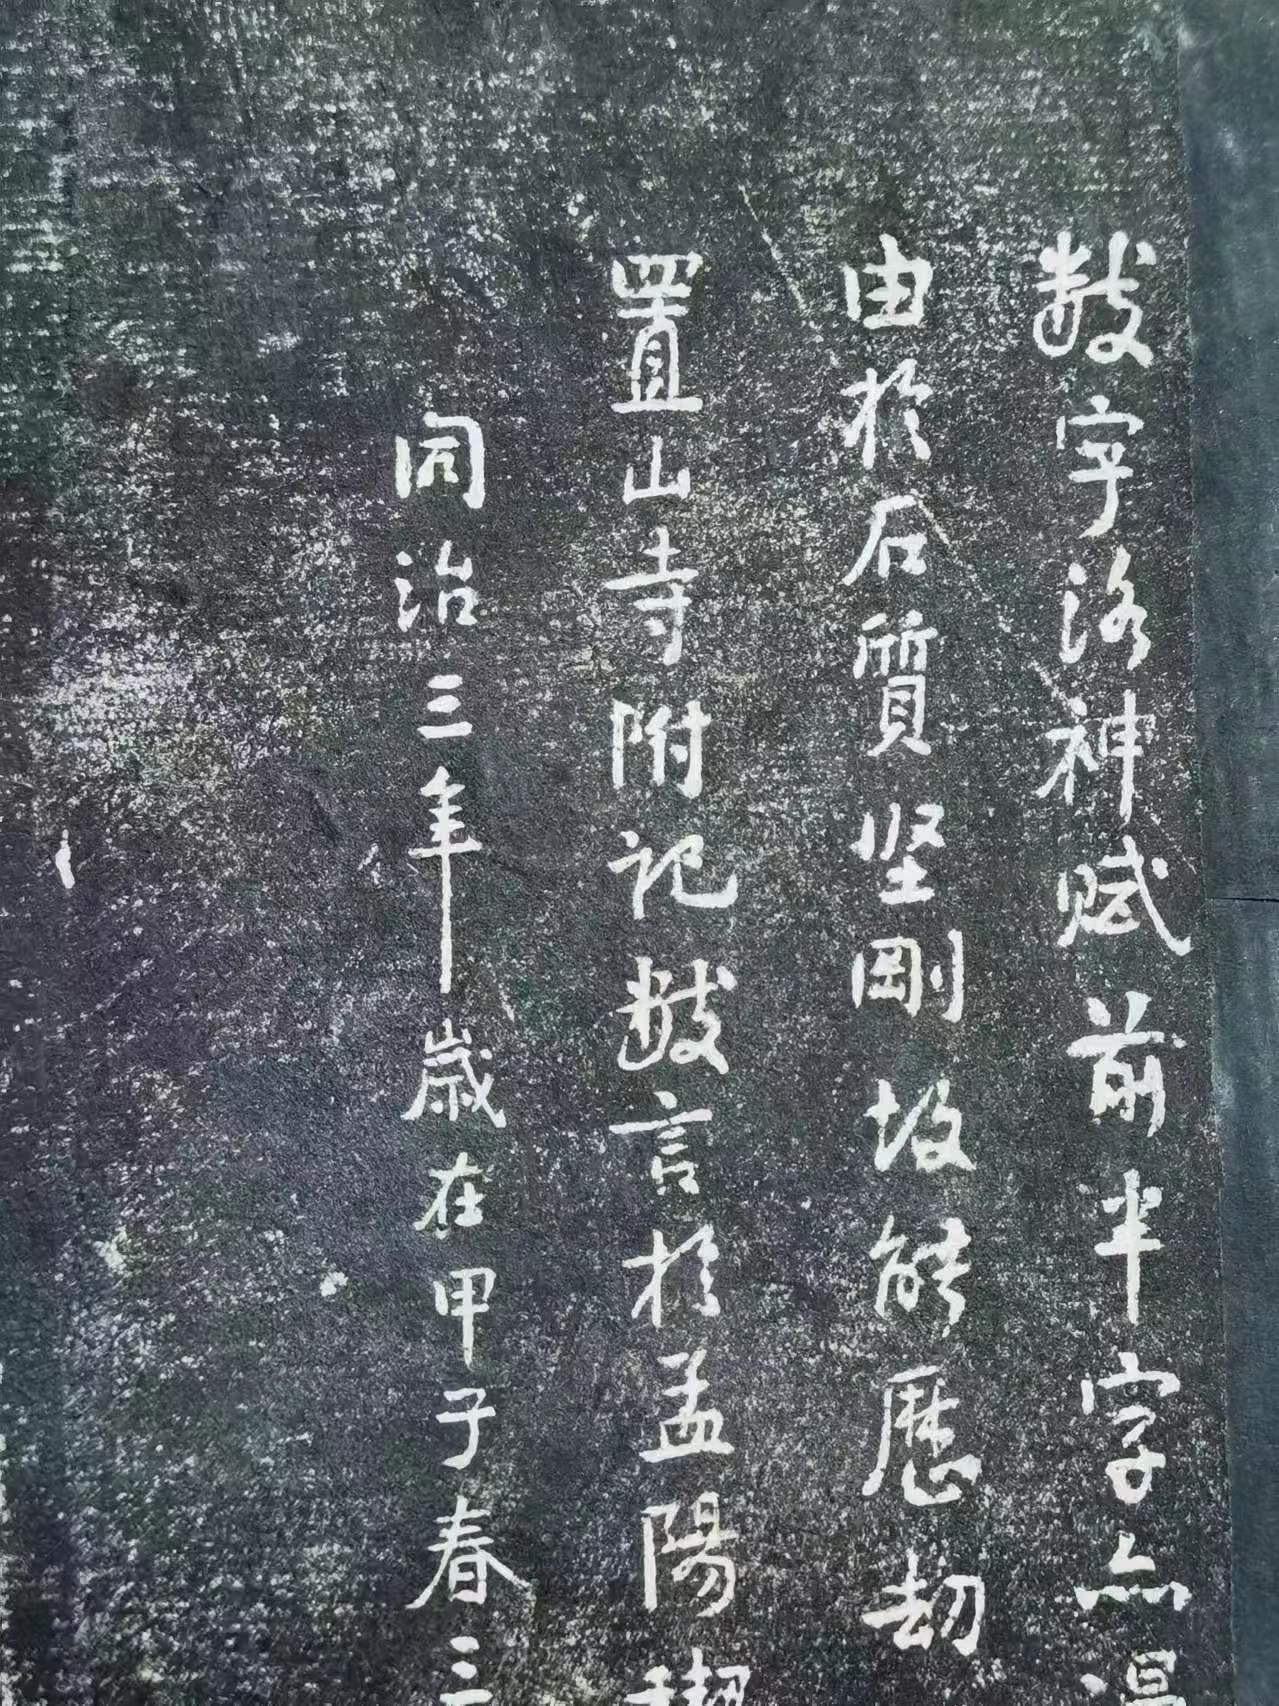 數字洛神賦前半字亦漫
由於石質堅剛故能歷劫
置山寺附記數言於孟陽
同治三年歲在甲子春三